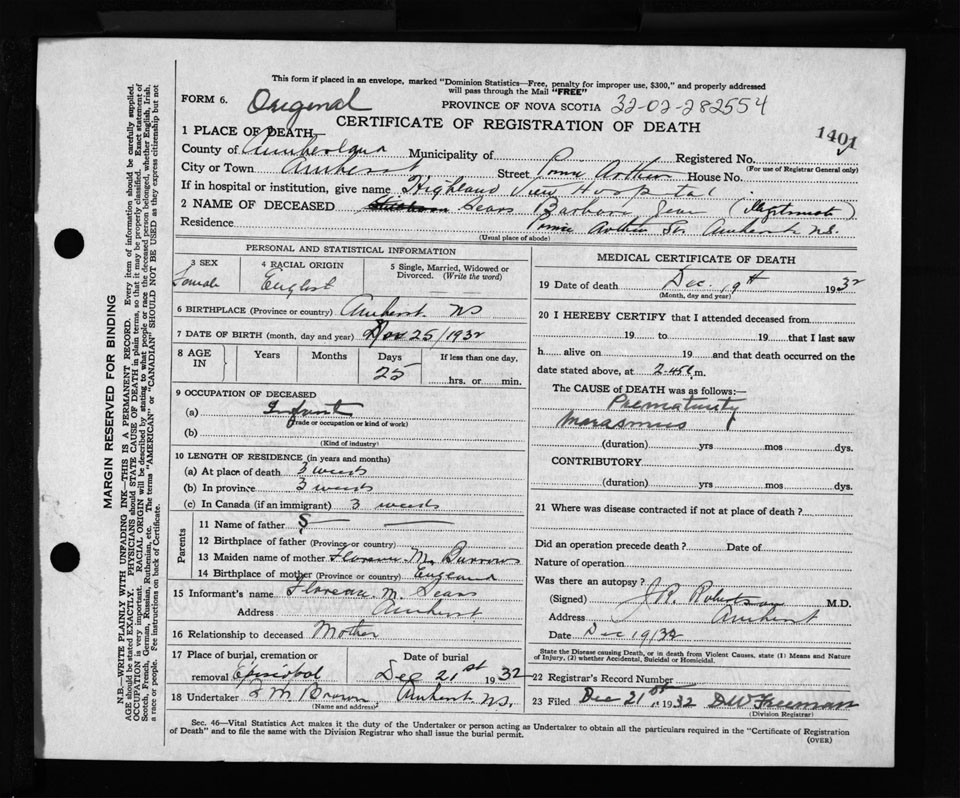 This form if placed in an envelope, marked "Dominion Statistics—Free, penalty for improper use, $300," and properly addressed
will pass through the Mail "FREE"
FORM 6. Original PROVINCE OF NOVA SCOTIA 32-02-282554
CERTIFICATE OF REGISTRATION OF DEATH
1401
1 PLACE OF DEATH—
County of Cumberland Municipality of Registered No.
City or Town Amherst Street Prince Arthur House No. (For use of Registrar General only)
If in hospital or institution, give name Highland View Hospital
2 NAME OF DECEASED Sears Barbara Jean (illegitimate)
Residence Prince Arthur St. Amherst N.S.
(Usual place of abode)
PERSONAL AND STATISTICAL INFORMATION
3 SEX 4 RACIAL ORIGIN 5 Single, Married, Widowed or
Divorced. (Write the word)
Female English
6 BIRTHPLACE (Province or country) Amherst NS
7 DATE OF BIRTH (month, day and year) Nov 25/1932
8 AGE IN Years Months Days If less than one day,
25 hrs. or min.
9 OCCUPATION OF DECEASED
(a) Infant
(Trade or occupation or kind of work)
(b)
(Kind of industry)
10 LENGTH OF RESIDENCE (in years and months)
(a) At place of death 3 weeks
(b) In province 3 weeks
(c) In Canada (if an immigrant) 3 weeks
Parents
11 Name of father
12 Birthplace of father (Province or country)
13 Maiden name of mother M. Burrows
14 Birthplace of mother (Province or country) England
15 Informant's name M. Sears
Address Amherst
16 Relationship to deceased Mother
17 Place of burial, cremation or Date of burial
removal Episcopal Dec 21st 1932
18 Undertaker Brown Amherst N.S.
(Name and address)
MEDICAL CERTIFICATE OF DEATH
19 Date of death Dec. 19th 1932
(Month, day and year)
20 I HEREBY CERTIFY that I attended deceased from
19 to 19 that I last saw
h alive on 19 and that death occurred on
date stated above, at 2.45 m.
The CAUSE OF DEATH was as follows:—
Prematurity
Marasmus
(duration) yrs mos dys.
CONTRIBUTORY
(duration) yrs mos dys.
21 Where was disease contracted if not at place of death?
Did an operation precede death? Date of
Nature of operation
Was there an autopsy?
(Signed) J.R. Robertson M.D.
Address Amherst
Date Dec 19/32
State the Disease causing Death, or in death from Violent Causes, state (1) Means and Nature
of Injury, (2) whether Accidental, Suicidal or Homicidal.
22 Registrar's Record Number
23 Filed Dec 21st 1932 D W Freeman
(Division Registrar)
Sec. 46—Vital Statistics Act makes it the duty of the Undertaker or person acting as Undertaker to obtain all the particulars required in the "Certificate of Registration
of Death" and to file the same with the Division Registrar who shall issue the burial permit.
(OVER)
MARGIN RESERVED FOR BINDING
N.B.—WRITE PLAINLY WITH UNFADING INK—THIS IS A PERMANENT RECORD. Every item of information should be carefully supplied.
AGE should be stated EXACTLY. PHYSICIANS should STATE CAUSE OF DEATH in plain terms, so that it may be properly classified. Exact statement of
OCCUPATION is very important. RACIAL ORIGIN will be described by stating to what people or race the deceased person belonged, whether English, Irish,
Scotch, French, German, Russian, Ruthenian, etc. The terms "AMERICAN" or "CANADIAN" SHOULD NOT BE USED as they express citizenship but not
a race or people. See instructions on back of Certificate.